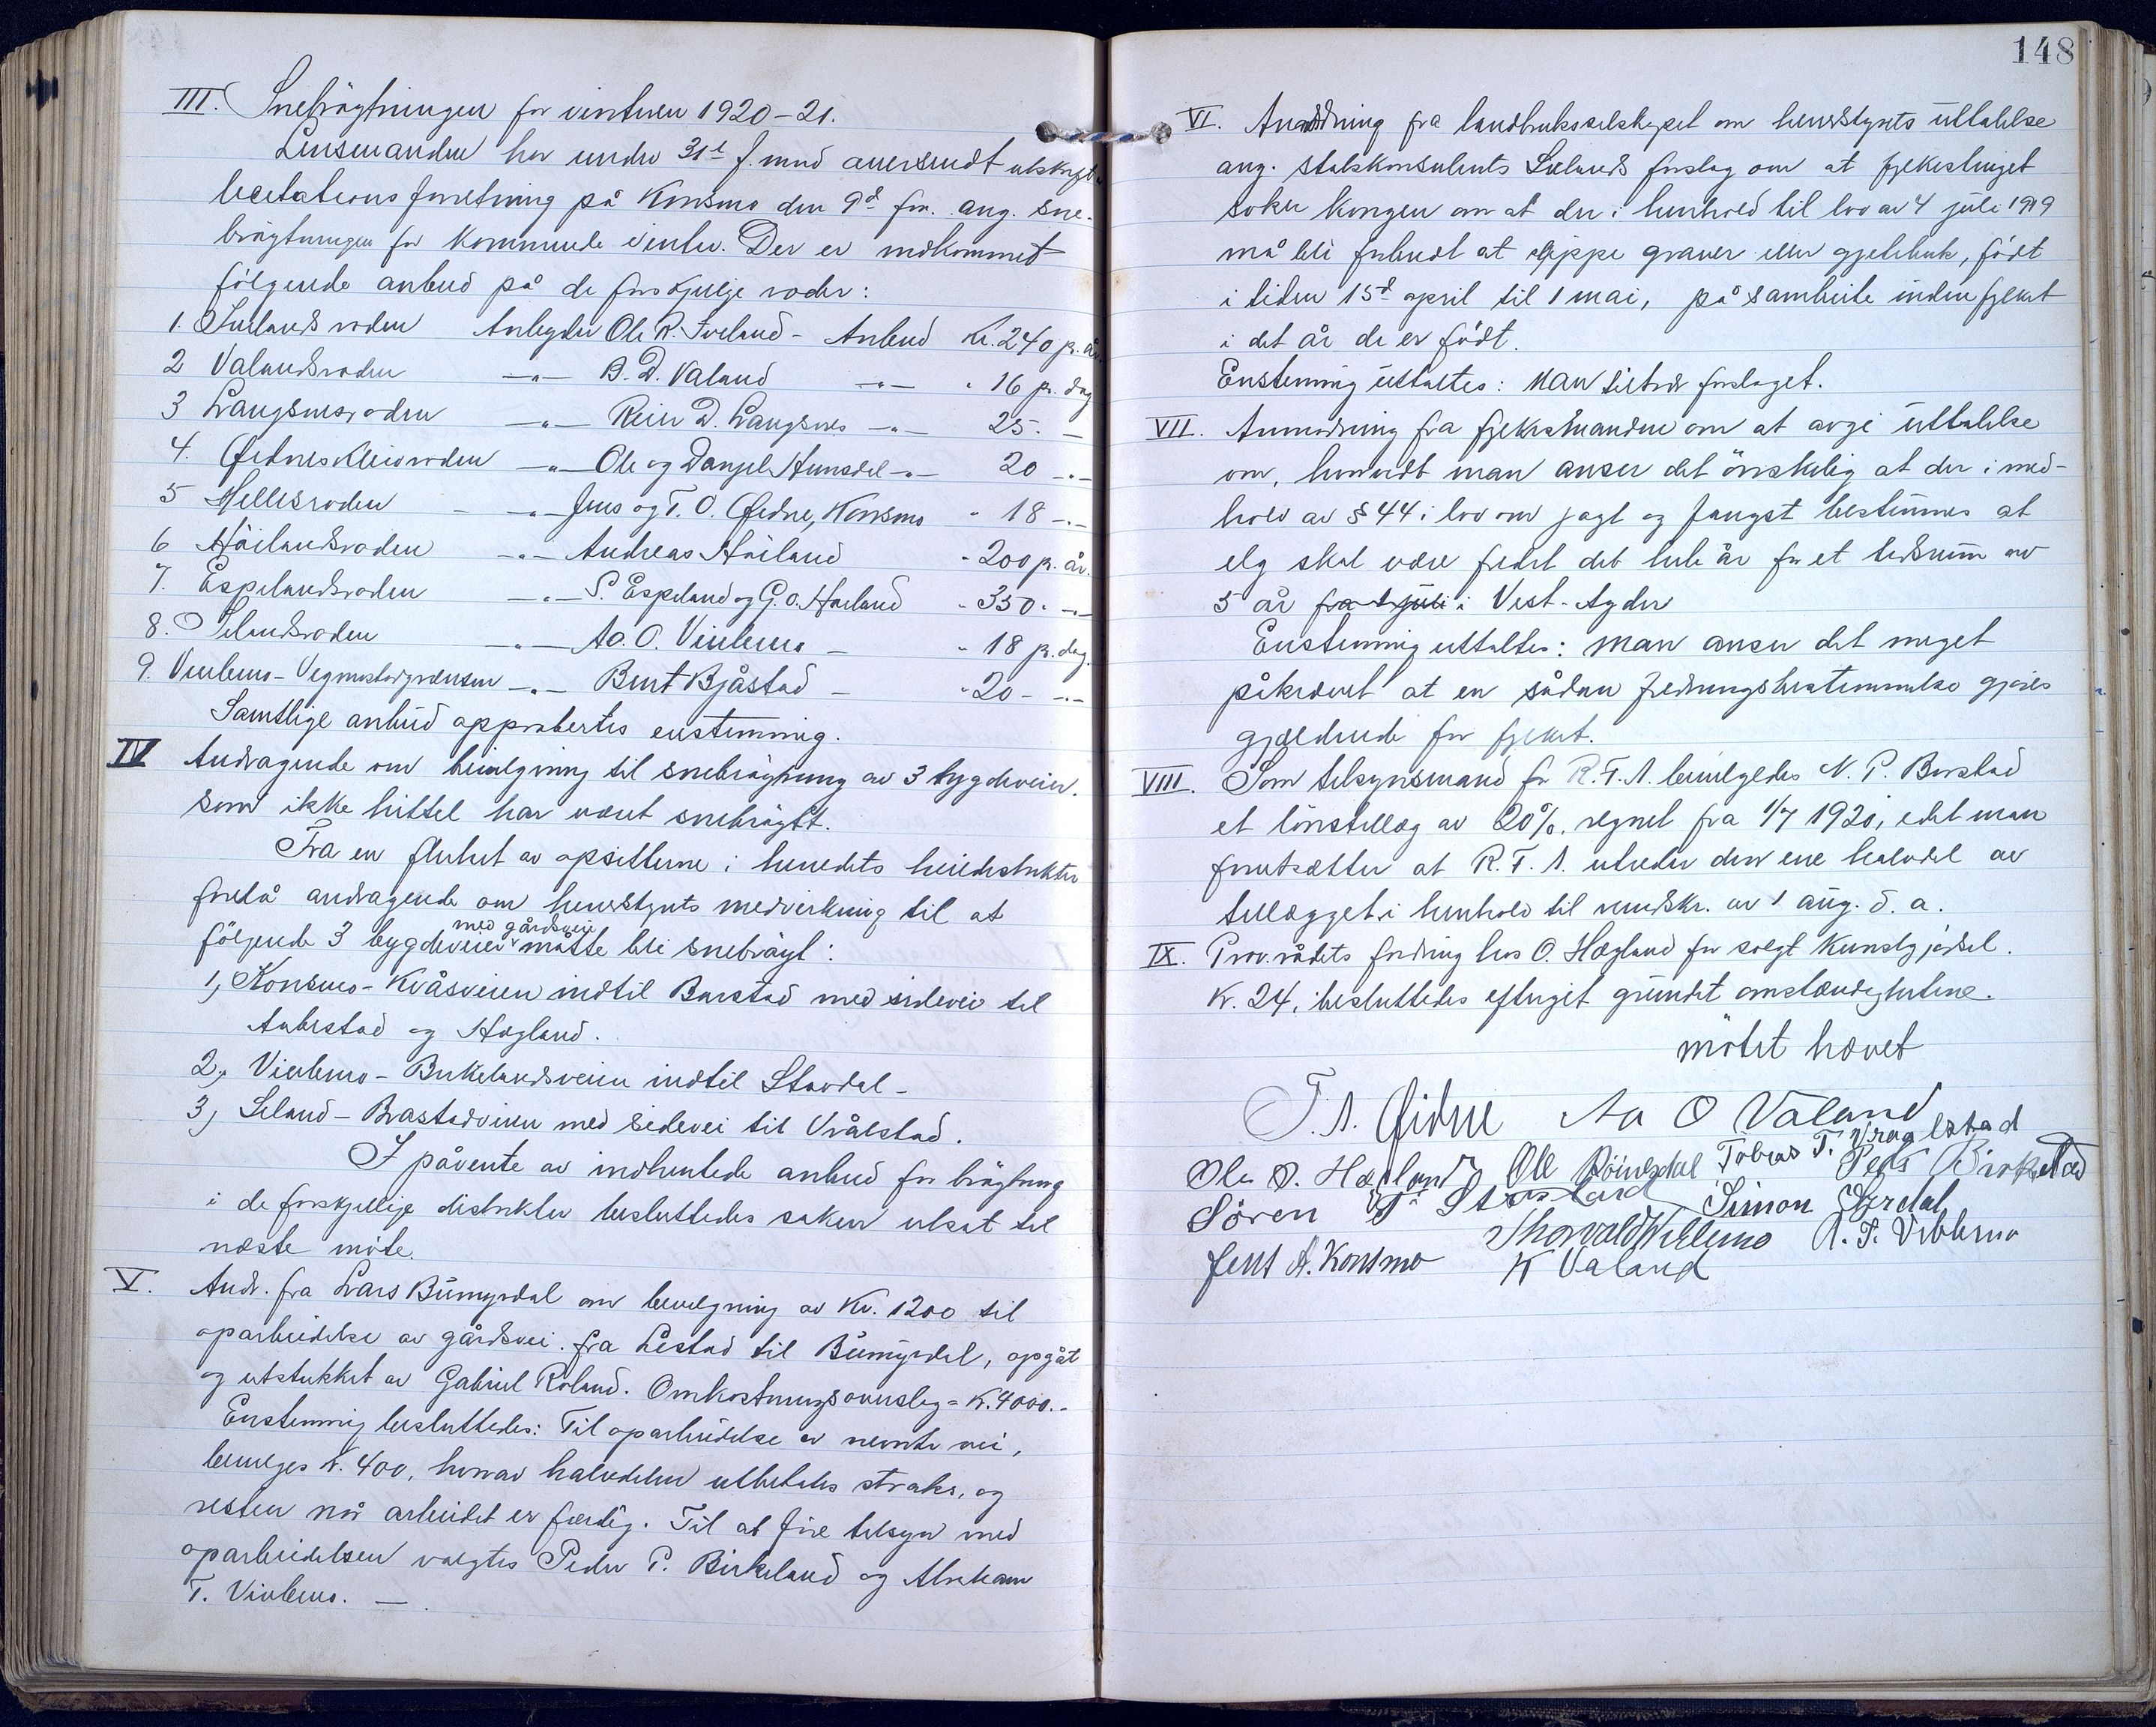 III. Snebrøgtningen for vinteren 1920-21.
Lensmanden har under 31te f. mnd oversendt utskrift
licitationsforretning på Konsmo den 9de for. ang. sne-
brøgtningen for kommende vinter. Der er indkommet
følgende anbud på de forskjelge roder:
1. Ivelands roden Anbyder Ole R. Iveland - Anbud Kr. 240 p. år.
2 Valandsroden -"- B. D. Valand -"- " 16 p. dag
3 Langsnesroden -"- Reier D. Langsnes -"- 25. -
4. Øidnes Kleivroden -"- Ole og Danjel Hunsdal -"- 20 -"-
5 Hellesroden -"- Jens og T. O. Øidne, Konsmo " 18 -"-
6 Høilandsroden -"- Andreas Høiland " 200 p. år.
7. Espelandsroden -"- S. Espeland og G. O. Høiland " 350. -"-
8. Selandsroden -"- Aa. O. Viblemo - " 18 p. dag.
9. Viblemo-Vegmostadgrænsen -"- Bent Bjåstad - " 20 - -"-
Samtlige anbud approbertes enstemmig.
IV Andragende om bevilgning til snebrøgtning av 3 bygdeveier.
som ikke hittil har været snebrøgtt.
Fra en flerhet av opsitterne i herredets heiedistrikter
forelå andragende om herredstyrets medvirkning til at
med gårdsveie
følgende 3 bygdeveier måtte bli snebrøgt:
1, Konsmo-Kvåsveien indtil Barstad med sidevei til
Aabestad og Hægland.
2, Viblemo-Birkelandsveien indtil Stavdal -
3, Seland-Brastadveien med sidevei til Vrålstad.
I påvente av indhentede anbud for brøgtning
i de forskjellige distrikter besluttedes saken utsat til
næste møte.
V. Andr. fra Lars Bumyrdal om bevilgning av Kr. 1200 til
oparbeidelse av gårdsvei. fra Lestad til Bumyrdal, opgåt
og utstukket av Gabriel Roland. Omkostningsoverslag = Kr. 4000.-
Enstemmig besluttedes: Til oparbeidelse av nevnte vei,
bevilges Kr. 400, hvorav halvdelen utbetales straks, og
resten når arbeidet er færdig. Til at føre tilsyn med
oparbeidelsen valgtes Peder P. Birkeland og Abraham
T. Viblemo. -
148
VI. Anmodning fra landbruksselskapet om herredstyrets uttalelse
ang. statskonsulents Sælands forslag om at fylkestinget
søker kongen om at der i henhold til lov av 4 juli 1919
må bli forbudt at slippe graver eller gjetebuk, født
i tiden 15de april til 1 mai, på sambeite inden fylket
i det år de er født.
Enstemmig uttaltes: Man tiltrær forslaget.
VII. Anmodning fra fylkesmanden om at avgi uttalelse
om, hvorvidt man anser det ønskelig at der i med-
hold av § 44 i lov om jagt og fangst bestemmes at
elg skal være fredet det hele år for et tidsrum av
5 år fra 1 juli i Vest-Agder
Enstemmig uttaltes: Man anser det meget
påkrævet at en sådan fredningsbestemmelse gjøres
gjældende for fylket.
VIII. Som tilsynsmand for R.T.A. bevilgedes N. P. Barstad
et lønstillæg av 20%, regnet fra 1/7 1920, idet man
forutsætter at R.T.A. utreder den ene halvdel av
tillægget i henhold til rundskr. av 1 aug. d. a.
IX. Prov.rådets fordring hos O. Hægland for solgt kunstgjødsel.
Kr. 24, besluttedes eftergit grundet omstændighetene.
møtet hævet
T. A. Øidne Aa O Valand
Ole O. Hægland Ole Røinesdal Tobias T. Vraalstad
Søren Simon Peder Birkeland
Jens A. Konsmo Thorvald Viblemo A. T. Viblemo
K Valand